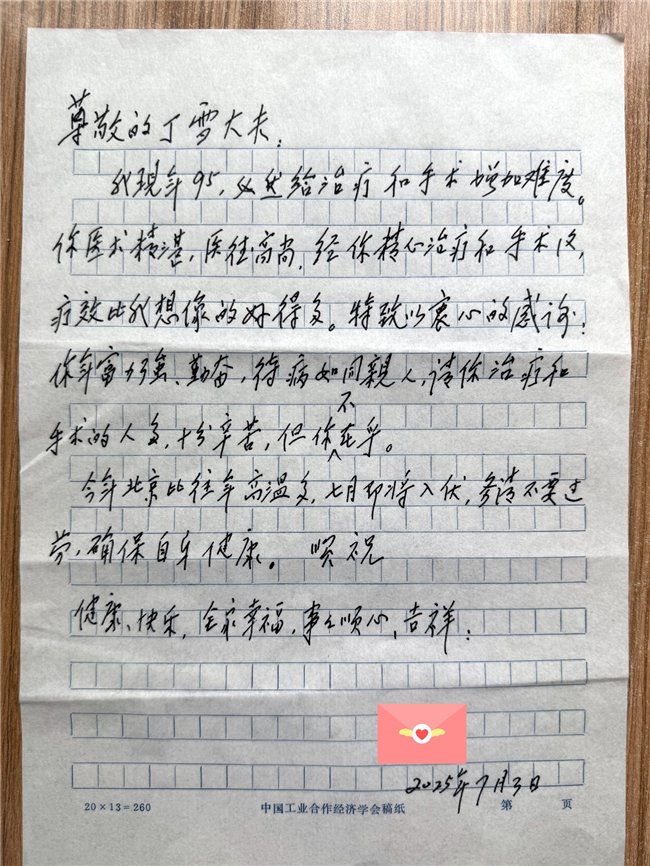 尊敬的丁雪大夫：
我现年95，必然给治疗和手术增加难度。
你医术精湛，医德高尚，经你精心治疗和手术后，
疗效比我想像的好得多。特致以衷心的感谢！
你年富力强、勤奋，待病如同親人，请你治疗和
手术的人多，十分辛苦，但你不在乎。
今年北京比往年高温多，七月即将入伏，务请不要过
劳，确保自身健康。 顺祝
健康、快乐，全家幸福，事事顺心，吉祥！
2025年7月3日
20×13=260 中国工业合作经济学会稿纸 第 页